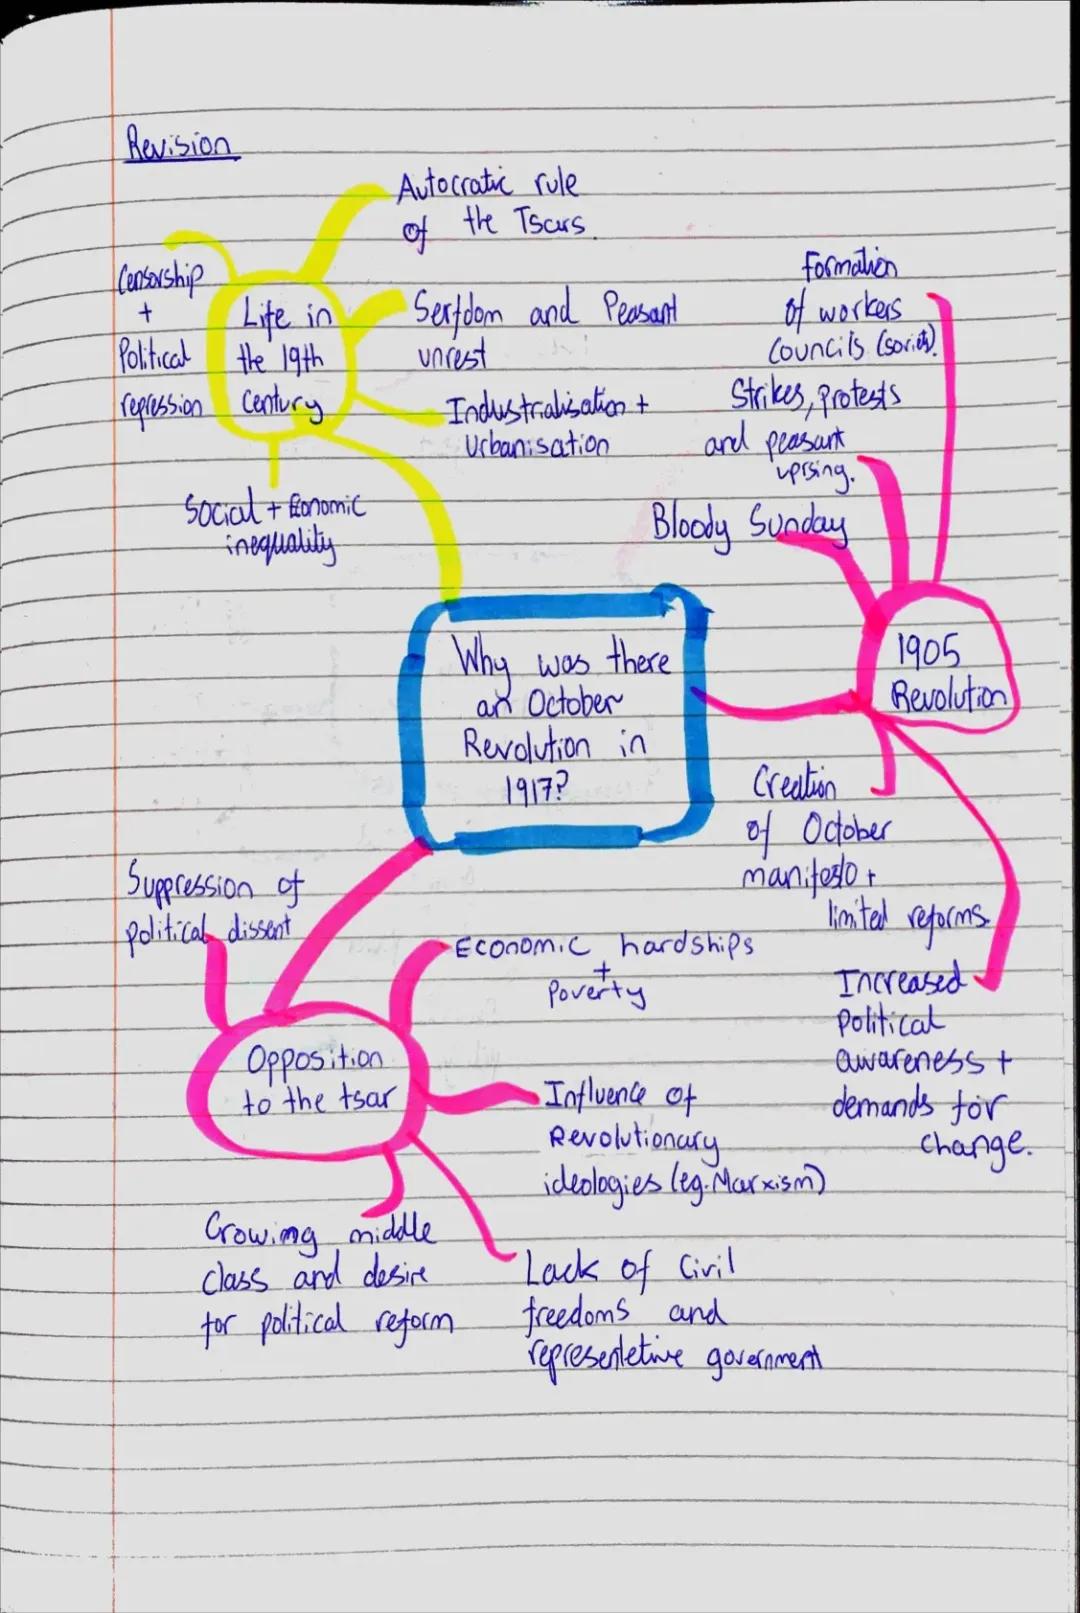 Revision
Autocratic rule
of the Tsars.
Censorship
+
Political
repression
Life in
the 19th
Century
Serfdom and Peasant
unrest
Industrialisation +
Urbanisation
Social + Economic
inequality
Formation
of workers
Councils (soviets).
Strikes, protests
and peasant
uprsing.
Bloody Sunday
1905
Revolution
Why was there
an October
Revolution in
1917?
Creation
of October
manifesto +
limited reforms.
Increased
political
awareness +
demands for
change.
Suppression of
political dissent
Opposition
to the tsar
Economic hardships
+
Poverty
Influence of
Revolutionary
ideologies (eg. Marxism)
Growing middle
class and desire
for political reform
Lack of Civil
freedoms and
representetive government